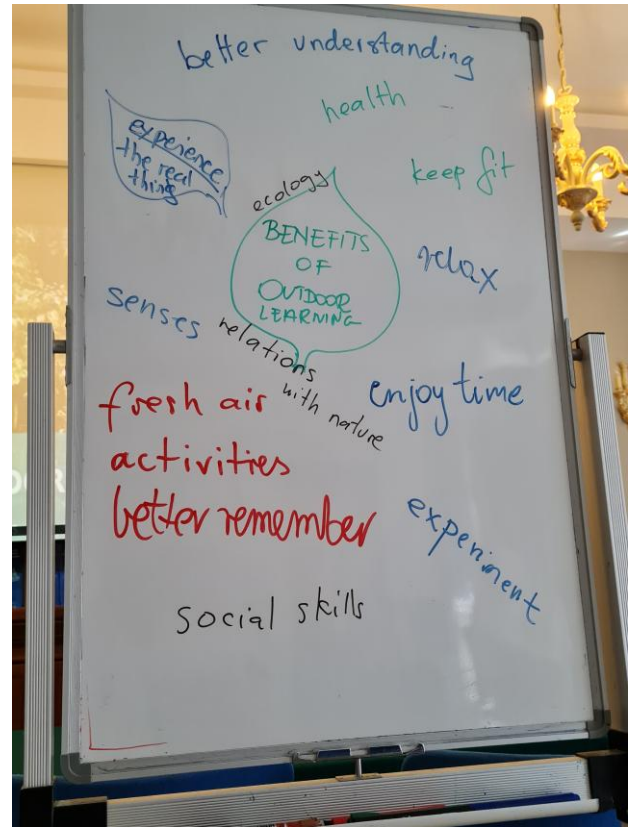 better understanding
health
experience
the real
thing
keep fit
ecology
BENEFITS
OF
OUTDOOR
LEARNING
relax
senses
relations
with nature
enjoy time
fresh air
activities
better remember
experiment
social skills